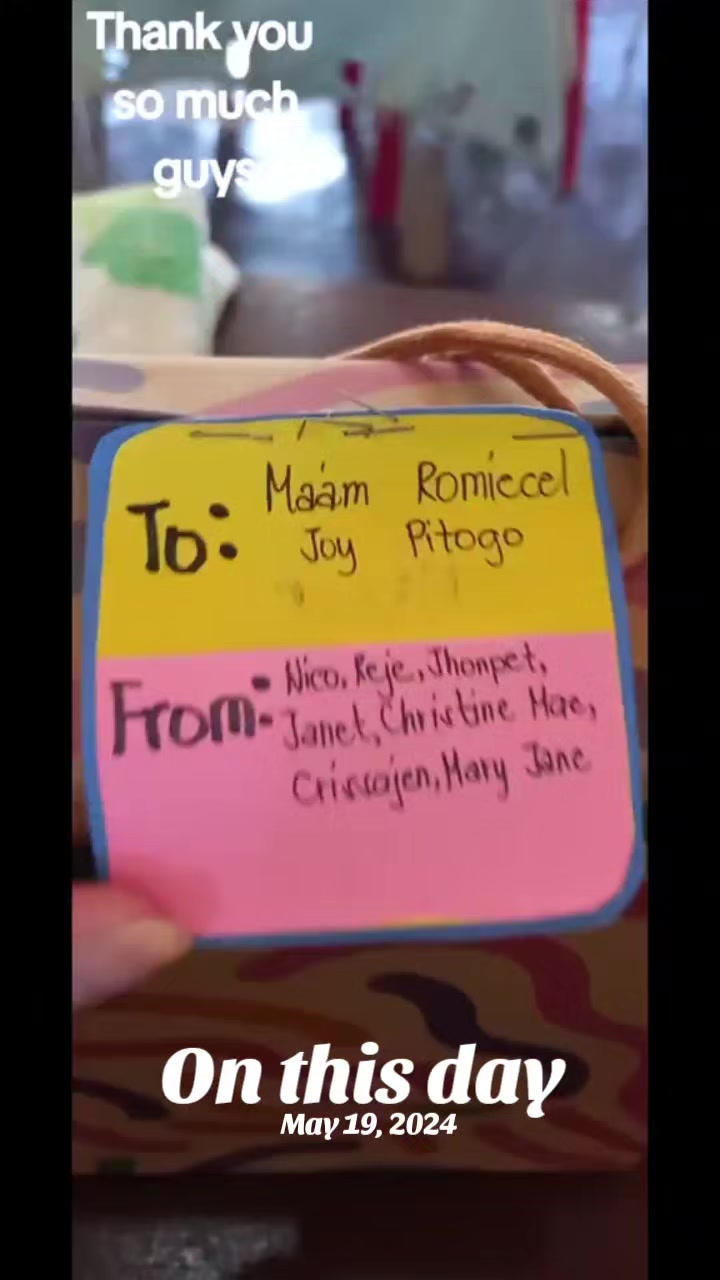 Thank you
so much
guys
To: Ma'am Romiecel
Joy Pitogo
From: Nico, Reje, Jhonpet,
Janet, Christine Mae,
Crissajen, Mary Jane
On this day
May 19, 2024